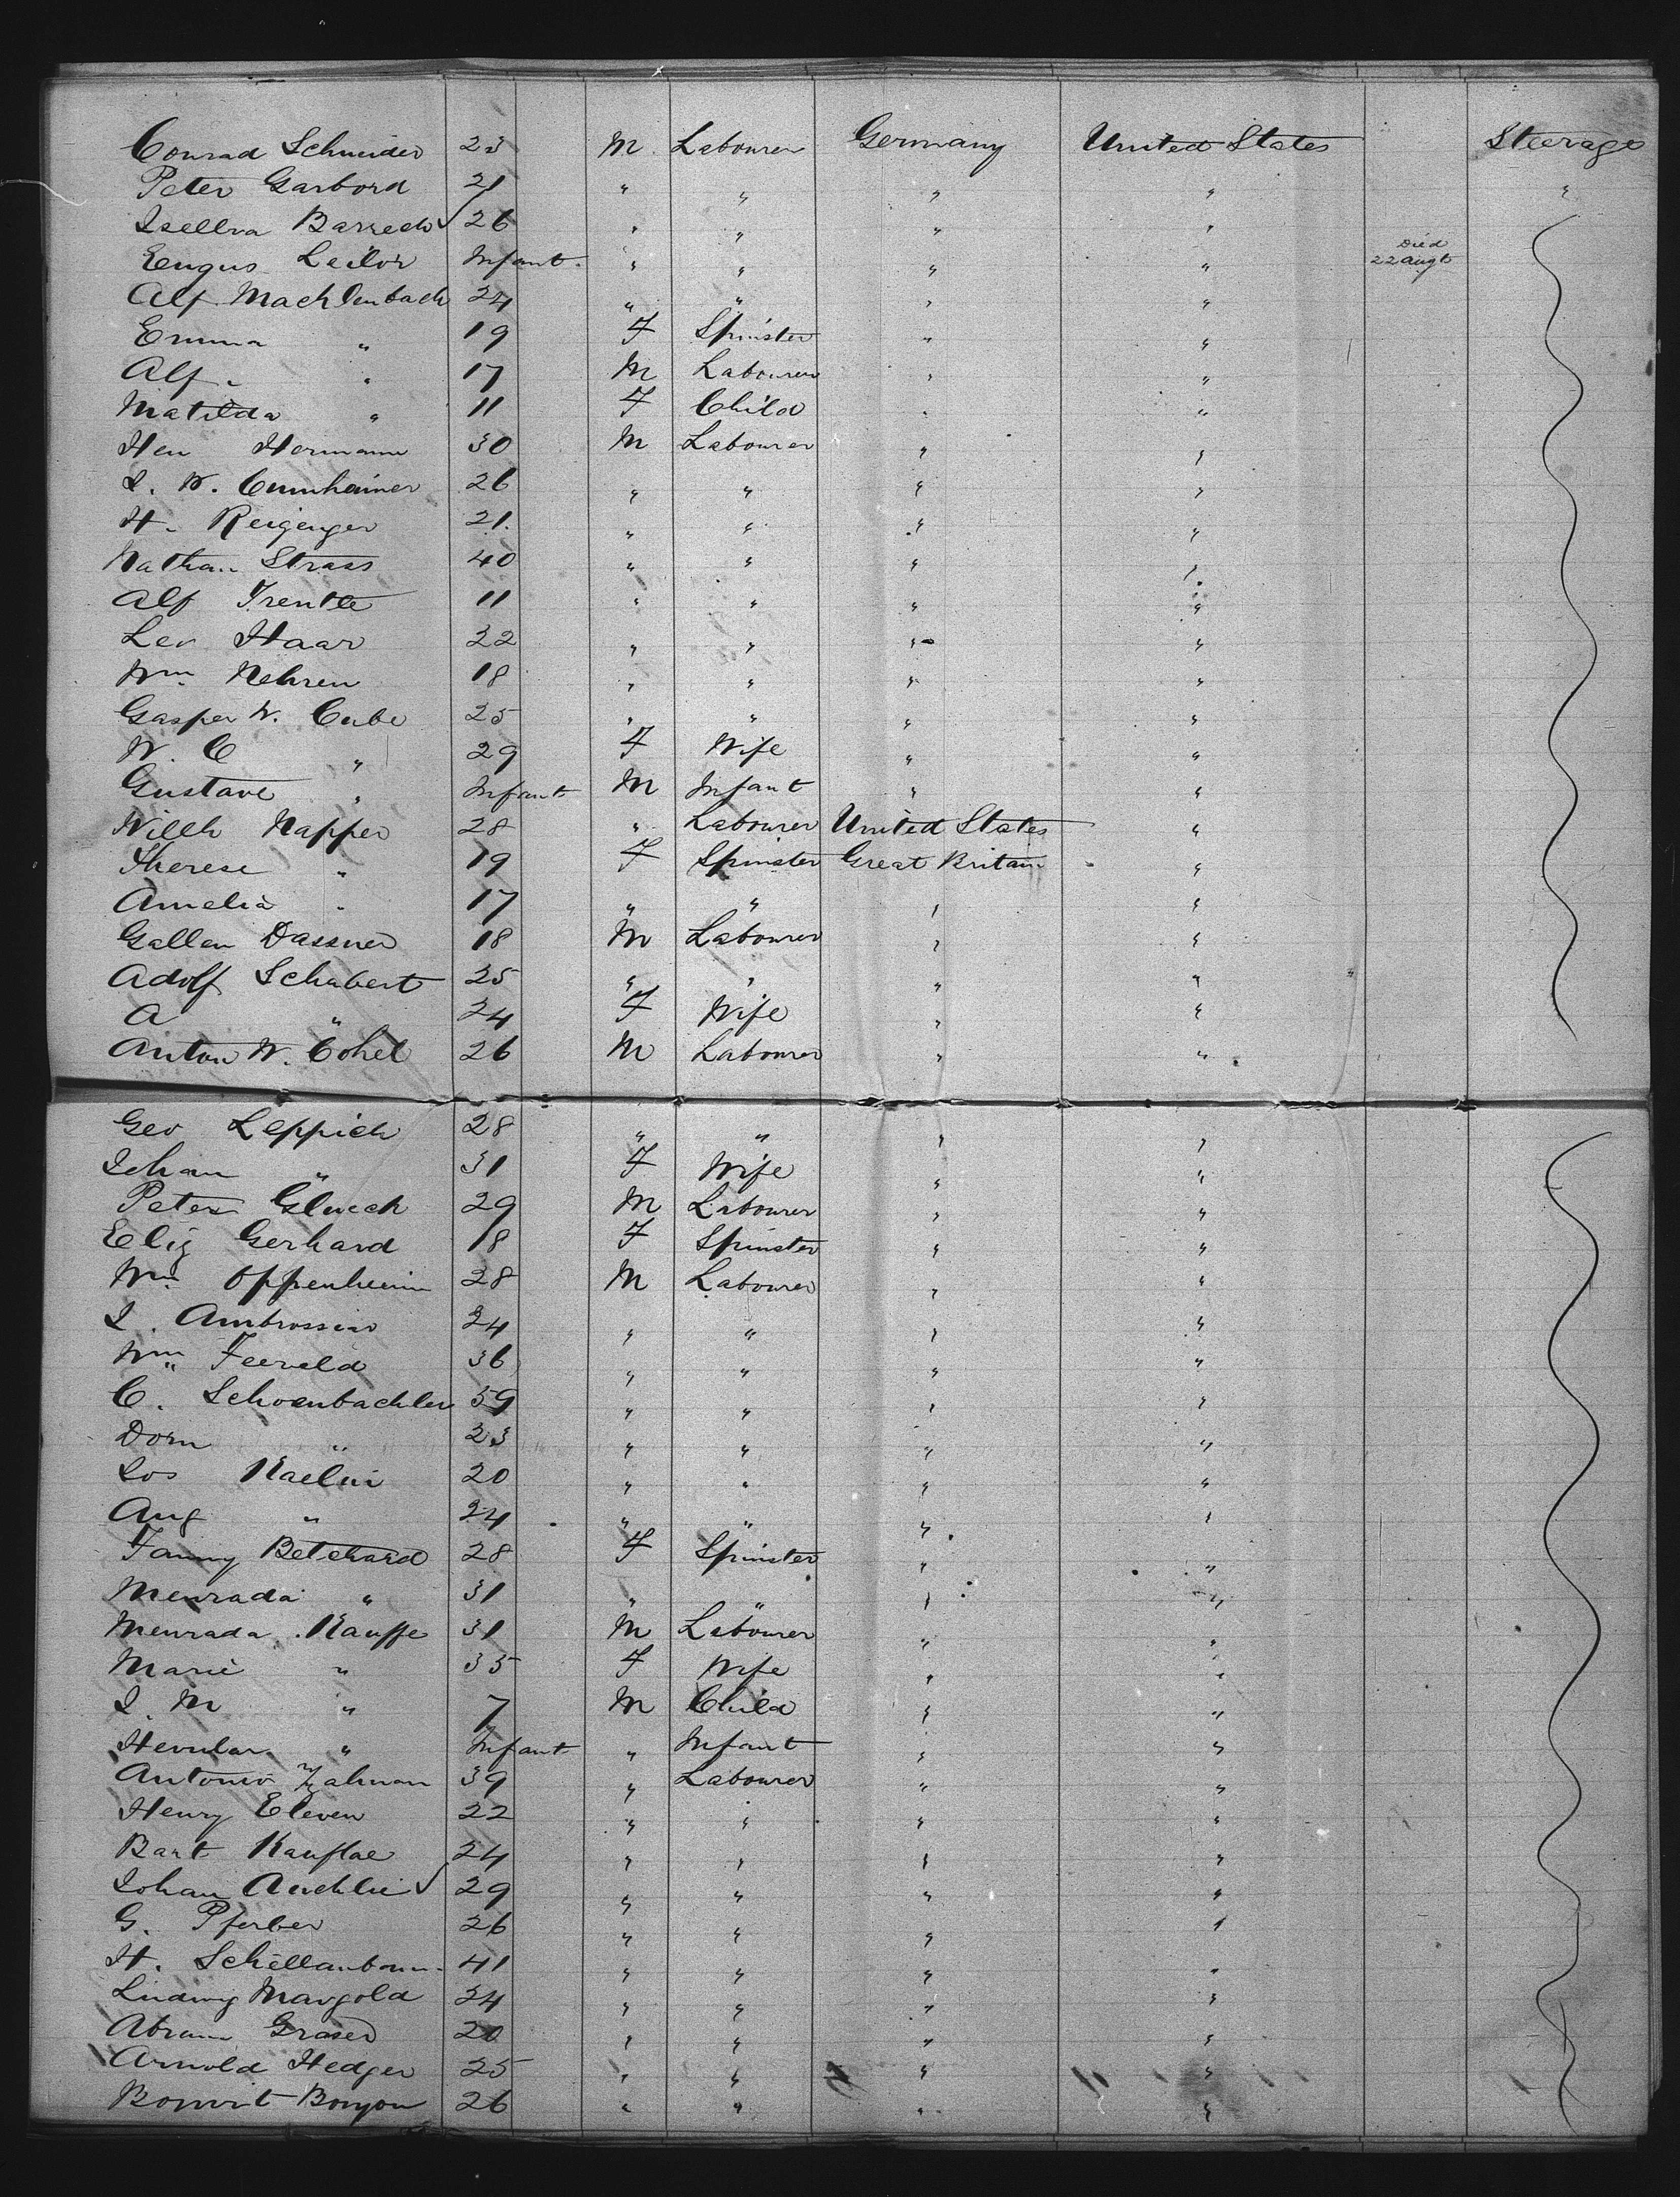 Conrad Schneider 23 M Labourer Germany United States Steerage
Peter Garbord 21 " " " " "
Isellva Barrech 26 " " " "
Eugus Leilor Infant " " " " Died 22 Augt
Alf Machlenbach 24 " " " "
Emma " 19 F Spinster " "
Alf " 17 M Labourer " "
Matilda " 11 F Child " "
Hen Hermann 30 M Labourer " "
I. W. Cumheimer 26 " " " "
H. Reigenger 21 " " " "
Nathan Strass 40 " " " "
Alf Trentle 11 " " " "
Leo Haar 22 " " " "
Wm Nehren 18 " " " "
Gasper W. Cube 25 " " " "
W. C " 29 F Wife " "
Gustave " Infant M Infant " "
Willh Napper 28 " Labourer United States "
Therese " 19 F Spinster Great Britain "
Amelia " 17 " " " "
Gallen Dassner 18 M Labourer " "
Adolf Schubert 25 " " " "
A " 24 F Wife " "
Anton W. Cohel 26 M Labourer " "
Geo Leppich 28 " " " "
Johan " 31 F Wife " "
Peter Gluech 29 M Labourer " "
Eliz Gerhard 18 F Spinster " "
Wm Oppenheim 28 M Labourer " "
I. Ambrossier 24 " " " "
Wm Feereld 36 " " " "
C. Schoenbachler 59 " " " "
Dorn " 23 " " " "
Jos Kaelin 20 " " " "
Aug " 24 " " " "
Fanny Betchard 28 F Spinster " "
Menrada " 31 " " " "
Menrada Kauffe 31 M Labourer " "
Marie " 35 F Wife " "
I. M " 7 M Child " "
Hevular " Infant " Infant " "
Antonio Zahman 39 " Labourer " "
Henry Eleven 22 " " " "
Bart Kauflae 24 " " " "
Johan Auchlie 29 " " " "
G. Pferber 26 " " " "
H. Schellanbaum 41 " " " "
Ludwig Margold 24 " " " "
Abram Graser 20 " " " "
Arnold Hedger 25 " " " "
Bonvit Bonyon 26 " " " "